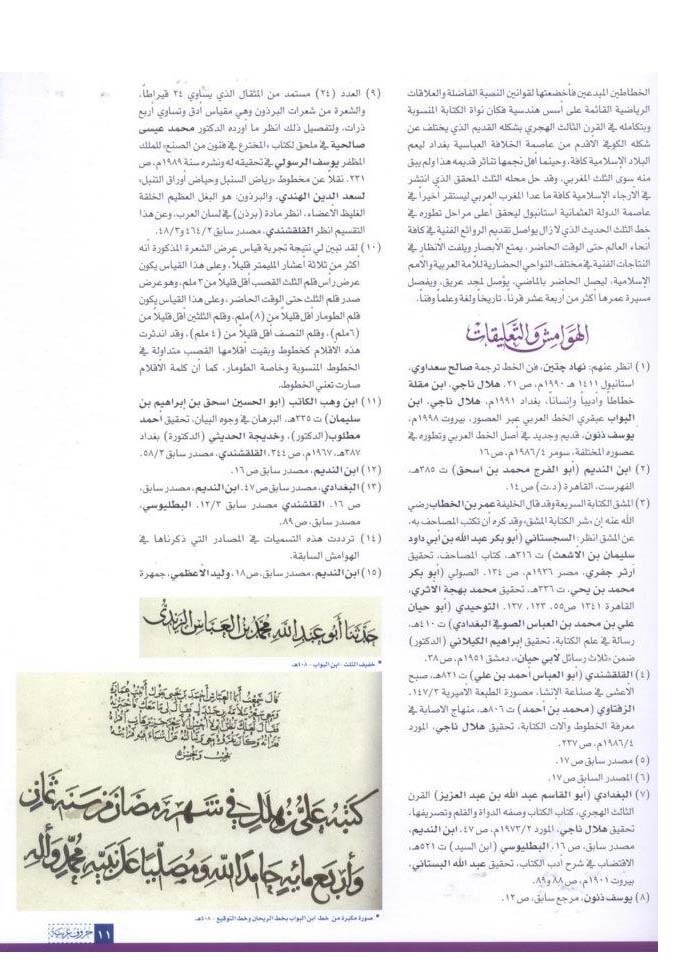 الخطاطين المبدعين فأخضعتها لقوانين النسبة الفاضلة والعلاقات
الرياضية القائمة على أسس هندسية فكان نواة الكتابة المنسوبة
وبتكامله في القرن الثالث الهجري بشكله القديم الذي يختلف عن
شكله الكوفي الاقدم من عاصمة الخلافة العباسية بغداد ليعم
البلاد الإسلامية كافة، وحينما أفل نجمها تناثر قديمه هذا ولم يبق
منه سوى الثلث المغربي، وقد حل محله الثلث المحقق الذي انتشر
في الأرجاء الإسلامية كافة ما عدا المغرب العربي ليستقر أخيراً في
عاصمة الدولة العثمانية استانبول ليحقق أعلى مراحل تطوره في
خط الثلث الحديث الذي لا زال يواصل تقديم الروائع الفنية في كافة
أنحاء العالم حتى الوقت الحاضر، يمتع الأبصار ويلفت الأنظار في
النتاجات الفنية في مختلف النواحي الحضارية للأمة العربية والأمم
الإسلامية، ليصل الحاضر بالماضي، يؤصل لمجد عريق، ويفصل
مسيرة عمرها أكثر من أربعة عشر قرناً، تاريخاً ولغة وعلماً وفناً.
الهوامش والتعليقات
(١) انظر عنهم: نهاد چتين، فن الخط ترجمة صالح سعداوي،
استانبول ١٤١١ هـ ١٩٩٠م، ص ٢١. هلال ناجي، ابن مقلة
خطاطاً وأديباً وإنساناً، بغداد ١٩٩١م، هلال ناجي، ابن
البواب عبقري الخط العربي عبر العصور، بيروت ١٩٩٨م،
يوسف ذنون، قديم وجديد في أصل الخط العربي وتطوره في
عصوره المختلفة، سومر ١٩٨٦/٤م، ص ١٦
(٢) ابن النديم (أبو الفرج محمد بن اسحق) ت ٣٨٥هـ،
الفهرست، القاهرة (د.ت) ص ١٤.
(٣) المشق الكتابة السريعة وقد قال الخليفة عمر بن الخطاب رضي
الله عنه إن «شر الكتابة المشق» وقد كره أن تكتب المصاحف به،
عن المشق انظر: السجستاني (أبو بكر عبد الله بن أبي داود
سليمان بن الأشعث) ت ٣١٦هـ، كتاب المصاحف، تحقيق
آرثر جفري، مصر ١٩٣٦م، ص ١٣٤. الصولي (أبو بكر
محمد بن يحي، ت ٣٣٦هـ، تحقيق محمد بهجة الأثري،
القاهرة ١٣٤١ ص٥٥، ١٢٣، ١٢٧. التوحيدي (أبو حيان
علي بن محمد بن العباس الصوفي البغدادي) ت ٤١٠هـ،
رسالة في علم الكتابة، تحقيق إبراهيم الكيلاني (الدكتور)
ضمن «ثلاث رسائل لأبي حيان»، دمشق ١٩٥١م، ص٣٨.
(٤) القلقشندي (أبو العباس أحمد بن علي) ت ٨٢١هـ، صبح
الأعشى في صناعة الإنشا، مصورة الطبعة الأميرية ١٤٧/٣.
الزفتاوي (محمد بن أحمد) ت ٨٠٦هـ، منهاج الاصابة في
معرفة الخطوط وآلات الكتابة، تحقيق هلال ناجي، المورد
١٩٨٦/٤م، ص ٢٣٧.
(٥) مصدر سابق ص ١٧.
(٦) المصدر السابق ص ١٧.
(٧) البغدادي (أبو القاسم عبد الله بن عبد العزيز) القرن
الثالث الهجري، كتاب الكتاب وصفه الدواة والقلم وتصريفها،
تحقيق هلال ناجي، المورد ١٩٧٣/٢م، ص ٤٧. ابن النديم،
مصدر سابق، ص ١٦. البطليوسي (ابن السيد) ت ٥٢١هـ،
الاقتضاب في شرح أدب الكتاب، تحقيق عبد الله البستاني،
بيروت ١٩٠١م، ص ٨٨ و٨٩.
(٨) يوسف ذنون، مرجع سابق، ص ١٢.
(٩) العدد (٢٤) مستمد من المثقال الذي يساوي ٢٤ قيراطاً،
والشعرة من شعرات البرذون وهي مقياس أدق وتساوي أربع
ذرات، ولتفصيل ذلك انظر ما أورده الدكتور محمد عيسى
صالحية في ملحق لكتاب «المخترع في فنون من الصنع» للملك
المظفر يوسف الرسولي في تحقيقه له ونشره سنة ١٩٨٩م، ص
٢٣١. نقلاً عن مخطوط «رياض السنبل وحياض أوراق التنبل»
لسعد الدين الهندي، والبرذون: هو البغل العظيم الخلقة
الغليظ الأعضاء، انظر مادة (برذن) في لسان العرب، وعن هذا
التقسيم انظر القلقشندي، مصدر سابق ٤٦٤/٢، ٤٨/٣.
(١٠) لقد تبين لي نتيجة تجربة قياس عرض الشعرة المذكورة أنه
أكثر من ثلاثة أعشار المليمتر قليلاً، وعلى هذا القياس يكون
عرض رأس قلم الثلث القصب أقل قليلاً من ٣ ملم، وهو عرض
صدر قلم الثلث حتى الوقت الحاضر، وعلى هذا القياس يكون
قلم الطومار أقل قليلاً من (٨)ملم، وقلم الثلثين أقل قليلاً من
(٦ملم)، وقلم النصف أقل قليلاً من (٤ ملم)، وقد اندثرت
هذه الأقلام كخطوط وبقيت أقلامها القصب متداولة في
الخطوط المنسوبة وخاصة الطومار، كما أن كلمة الاقلام
صارت تعني الخطوط.
(١١) ابن وهب الكاتب (أبو الحسين اسحق بن إبراهيم بن
سليمان) ت ٣٣٥هـ، البرهان في وجوه البيان، تحقيق أحمد
مطلوب(الدكتور)، وخديجة الحديثي (الدكتورة) بغداد
٣٨٧هـ، ١٩٦٧م، ص ٣٤٤. القلقشندي، مصدر سابق ٥٨/٣.
(١٢) ابن النديم، مصدر سابق ص ١٦.
(١٣) البغدادي، مصدر سابق ص ٤٧. ابن النديم، مصدر سابق،
ص ١٦. القلشندي مصدر سابق ١٢/٣. البطليوسي،
مصدر سابق، ص ٨٩.
(١٤) ترددت هذه التسميات في المصادر التي ذكرناها في
الهوامش السابقة.
(١٥) ابن النديم، مصدر سابق، ص١٨، وليد الأعظمي، جمهرة
حدثنا أبو عبد الله محمد بن العباس اليزيدي
خفيف الثلث - ابن البواب - ٤٠٨هـ
كتبه علي بن هلال في شهر رمضان من سنة ثمان
وأربع مائة حامدا لله ومصليا على نبيه محمد وآله
صورة مكبرة من خط ابن البواب بخط الريحان وخط التوقيع - ٤٠٨هـ
١١ حروف عربية